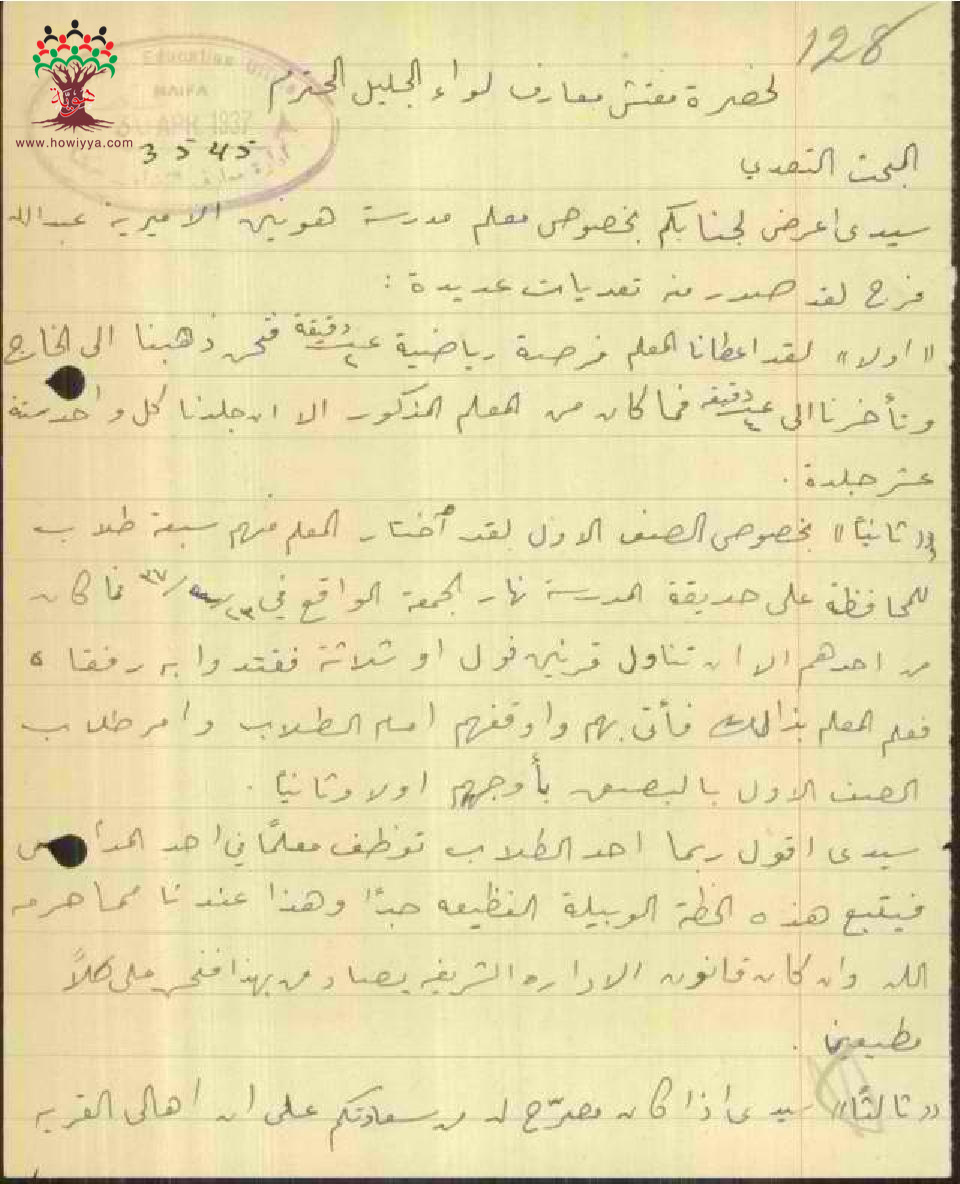 128
لحضرة مفتش معارف لواء الجليل المحترم
Education Office
HAIFA
30 APR 1937
3545
هوية
www.howiyya.com
البحث التعدي
سيدى اعرض لجنابكم بخصوص معلم مدرسة هونين الاميرية عبدالله
فرج لقد صدر منه تعديات عديدة :
"اولا" لقد اعطانا المعلم فرصة رياضية ٢ دقيقة فنحن ذهبنا الى الخارج
وتأخرنا الى ٤ دقيقه فما كان من المعلم المذكور الا ان جلدنا كل واحد ستة
عشر جلدة .
"ثانيًا" بخصوص الصف الاول لقد أختار المعلم منهم سبعة طلاب
للمحافظة على حديقة المدرسة نهار الجمعة الواقع في ٢٣/ /٣٧ فما كان
من احدهم الا ان تناول قرنين فول او ثلاثة فقتدوا به رفقاه
فعلم المعلم بذالك فأتى بهم واوقفهم امام الطلاب وامر طلاب
الصف الاول بالبصق بأوجههم اولا وثانيًا .
سيدى اقول ربما احد الطلاب توظف معلمًا في احد المدارس
فيتبع هذه الخطة الوبيلة الفظيعه جدًا وهذا عندنا مما حرمه
الله وان كان قانون الاداره الشريفه يصادق بهذا فنحن على كلاً
مطيعين .
"ثالثًا" سيدى اذا كان مصرّح له من سعادتكم على ان اهالى القريه